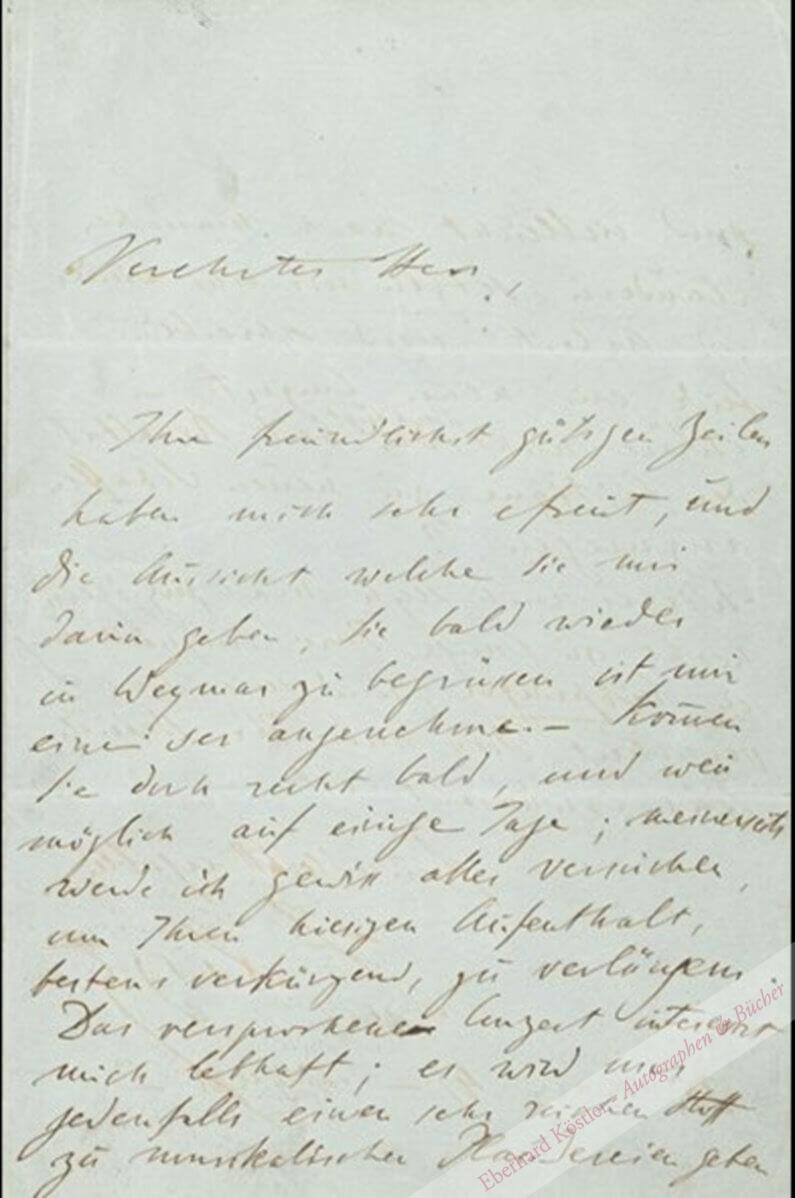 Verehrter Herr,
Ihre freundlichst gütigen Zeilen
haben mich sehr efreut, und
die Aussicht welche sie mir
darin geben, Sie bald wieder
in Weymar zu begrüssen ist mir
eine ser angenehme. – Komen
Sie doch recht bald, und wen
möglich auf einige Tage; meinerseits
werde ich gewiss alles versuchen,
um Ihren hiesigen Aufenthalt,
bestens verkürzend, zu verlängern.
Das versprochene Conzert interessirt
mich lebhaft; es wird uns
jedenfalls einen sehr reichen Stoff
zu musikalischen Plaudereien geben
Eberhard Köstler - Autographen & Bücher